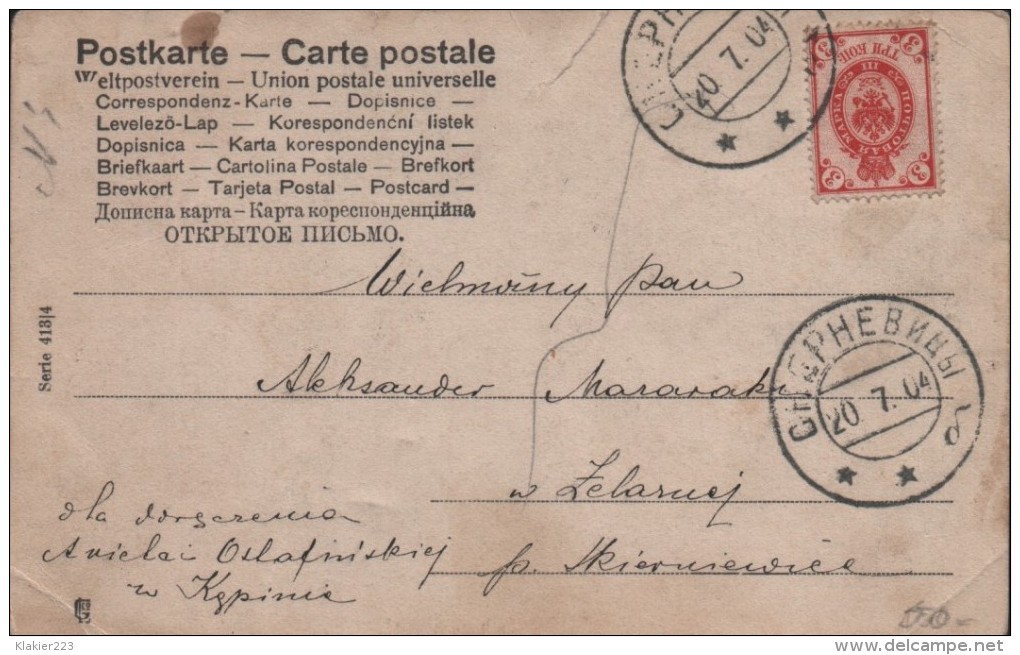 Postkarte — Carte postale
Weltpostverein — Union postale universelle
Correspondenz-Karte — Dopisnice —
Levelezö-Lap — Korespondenćni listek
Dopisnica — Karta korespondencyjna —
Briefkaart — Cartolina Postale — Brefkort
Brevkort — Tarjeta Postal — Postcard —
Дописна карта — Карта кореспонденційна
ОТКРЫТОЕ ПИСЬМО.
20 7. 04
3 ТРИ КОП. 3
ПОЧТОВАЯ МАРКА
3 3
Wielmożny Pan
Serie 413|4
СКЕРНЕВИЦЫ
20 7. 04
Aleksander
w Żelaznej
dla doręczenia
w Kępinie
p. Skierniewice
Klakier223
www.delcampe.net